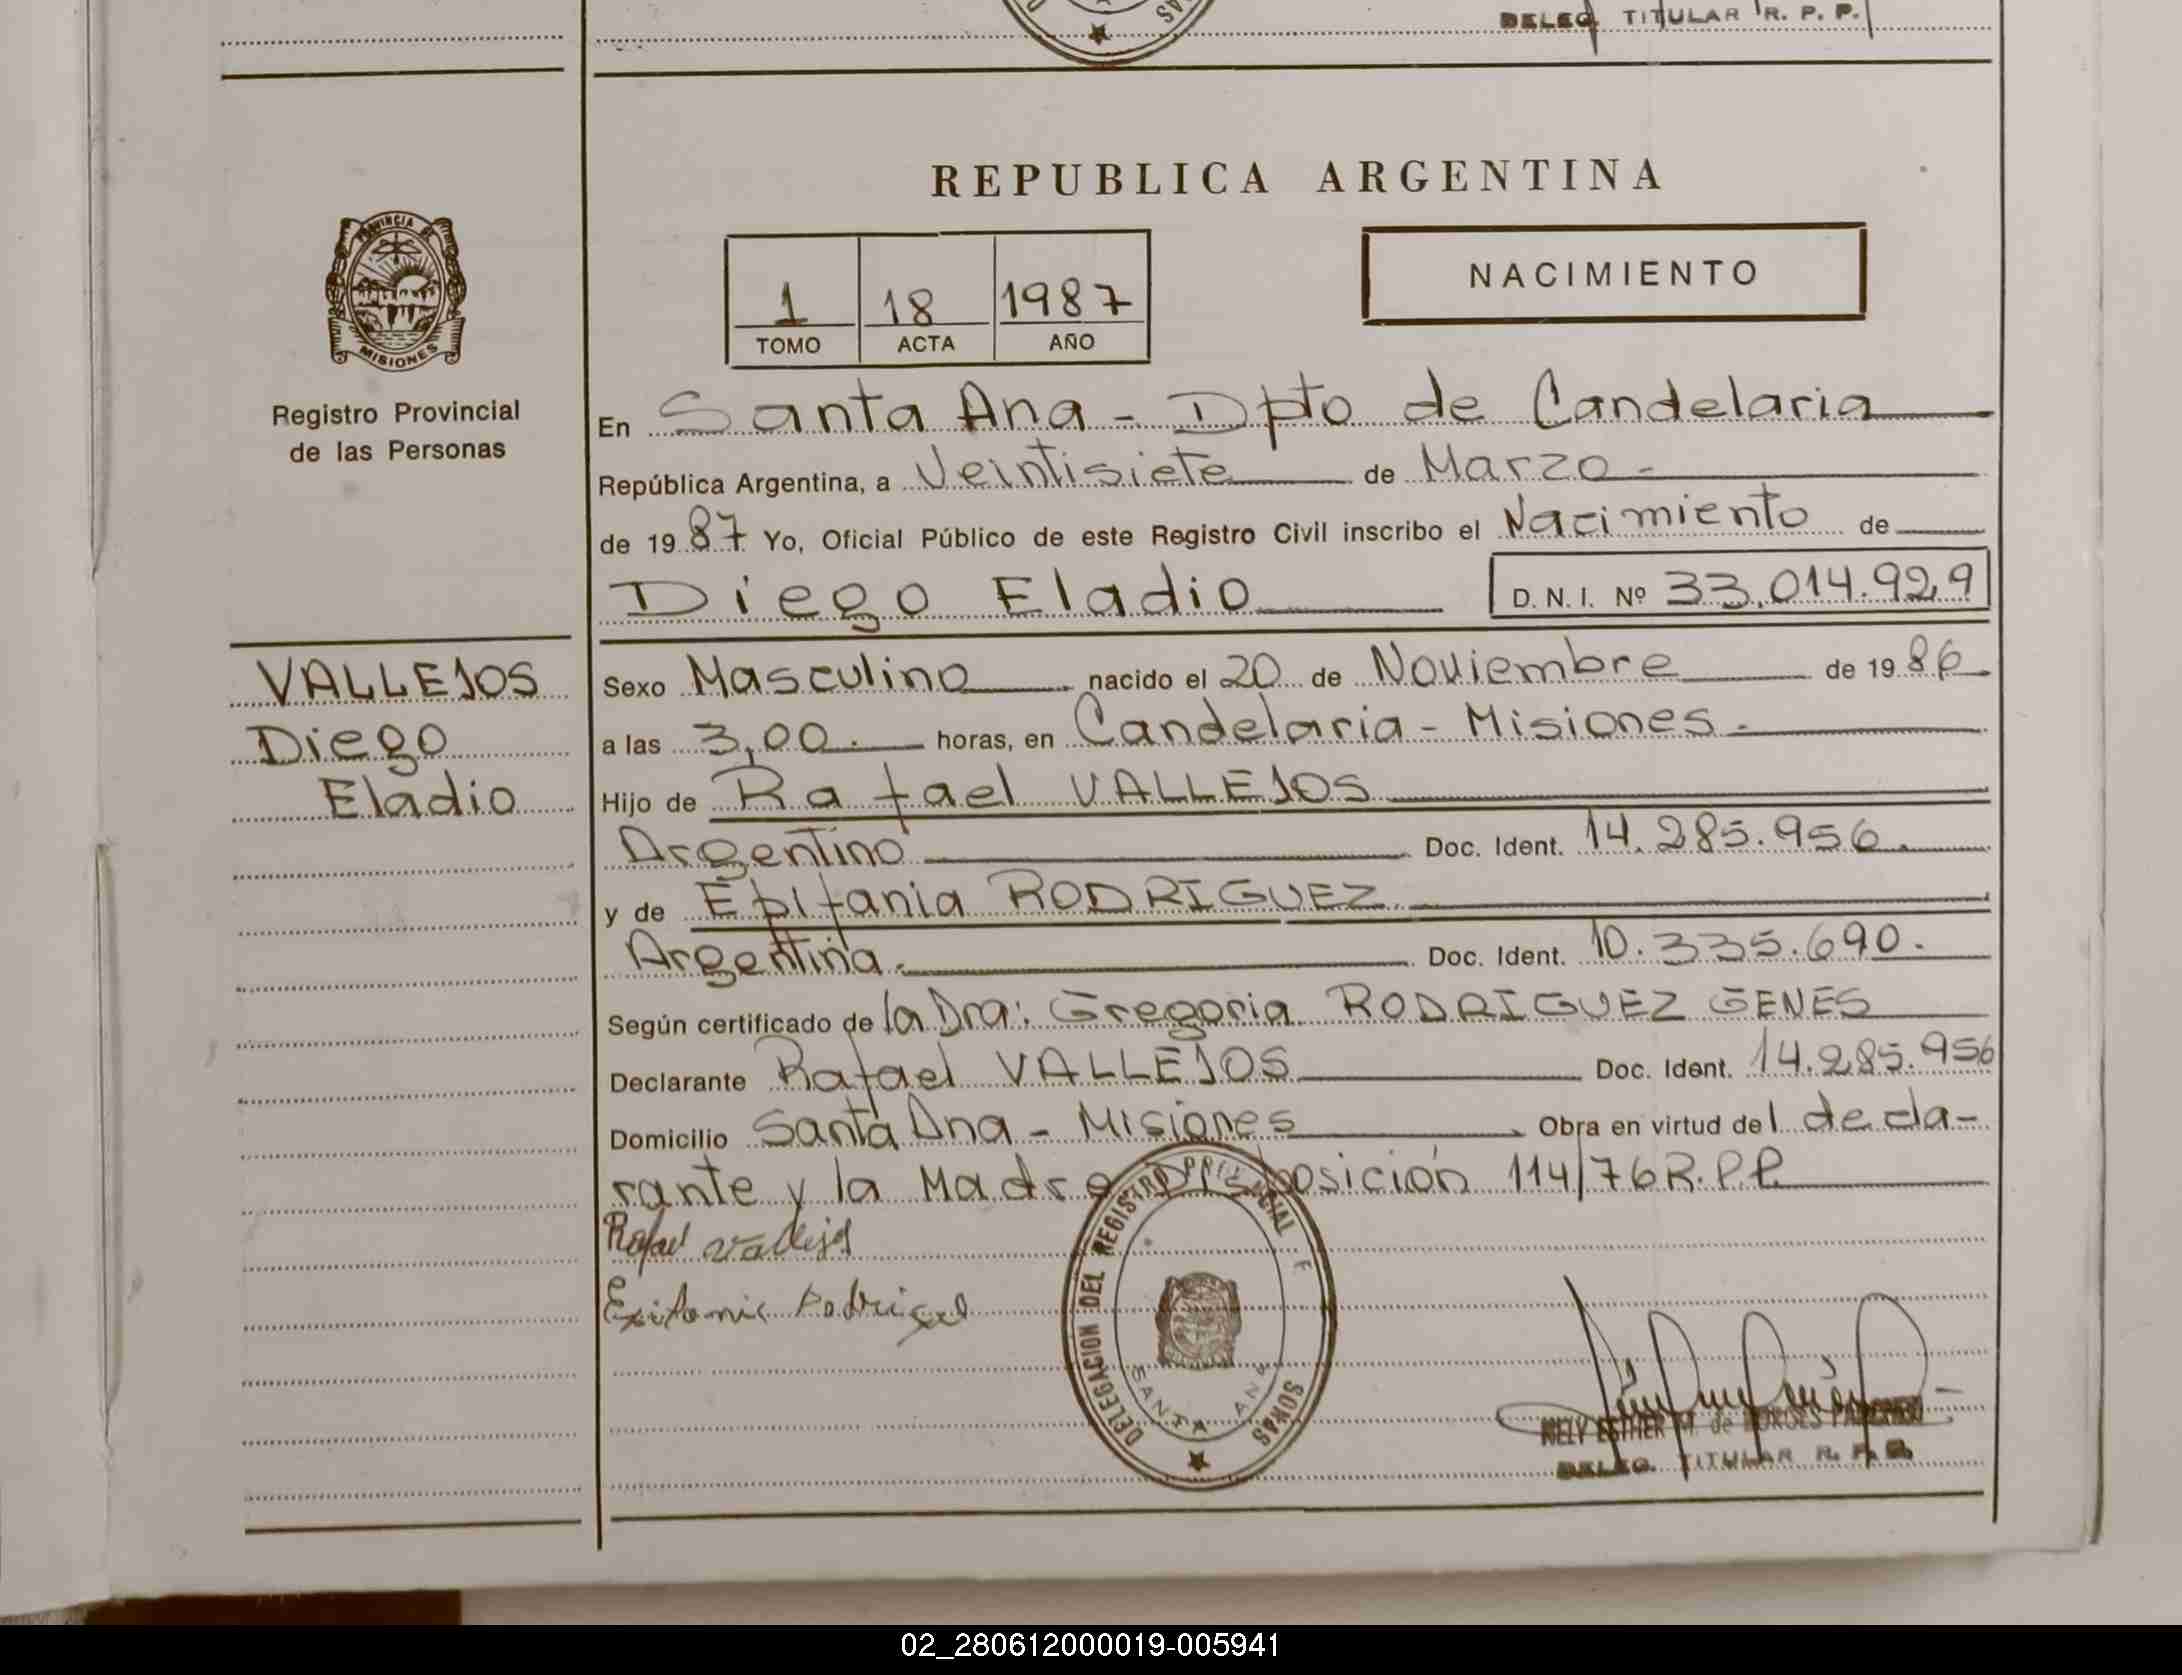 DELEG. TITULAR R. P. P.
REPUBLICA ARGENTINA
PROVINCIA DE
MISIONES
1 18 1987
TOMO ACTA AÑO
NACIMIENTO
Registro Provincial
de las Personas
En Santa Ana - Dpto de Candelaria
República Argentina, a Veintisiete de Marzo -
de 1987 Yo, Oficial Público de este Registro Civil inscribo el Nacimiento de
Diego Eladio D. N. I. Nº 33.014.929
VALLEJOS
Diego
Eladio
Sexo Masculino nacido el 20 de Noviembre de 1986
a las 3,00. horas, en Candelaria - Misiones.
Hijo de Rafael VALLEJOS
Argentino Doc. Ident. 14.285.956.
y de Epifania RODRIGUEZ
Argentina. Doc. Ident. 10.335.690.
Según certificado de la Dra: Gregoria RODRIGUEZ GENES
Declarante Rafael VALLEJOS Doc. Ident. 14.285.956
Domicilio Santa Ana - Misiones Obra en virtud del decla-
rante y la Madre Disposición 114/76 R.P.P.
Rafael Vallejos
DELEGACION DEL REGISTRO PROVINCIAL
SANTA ANA
NELY ESTHER M. de
DELEG. TITULAR R. P. P.
02_280612000019-005941